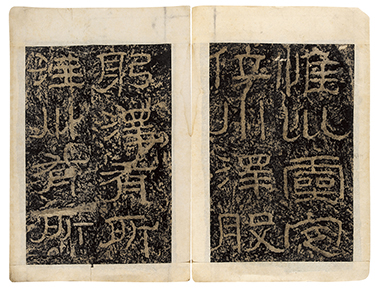 惟巛靈定
位川澤股
躬澤有所
注川有所